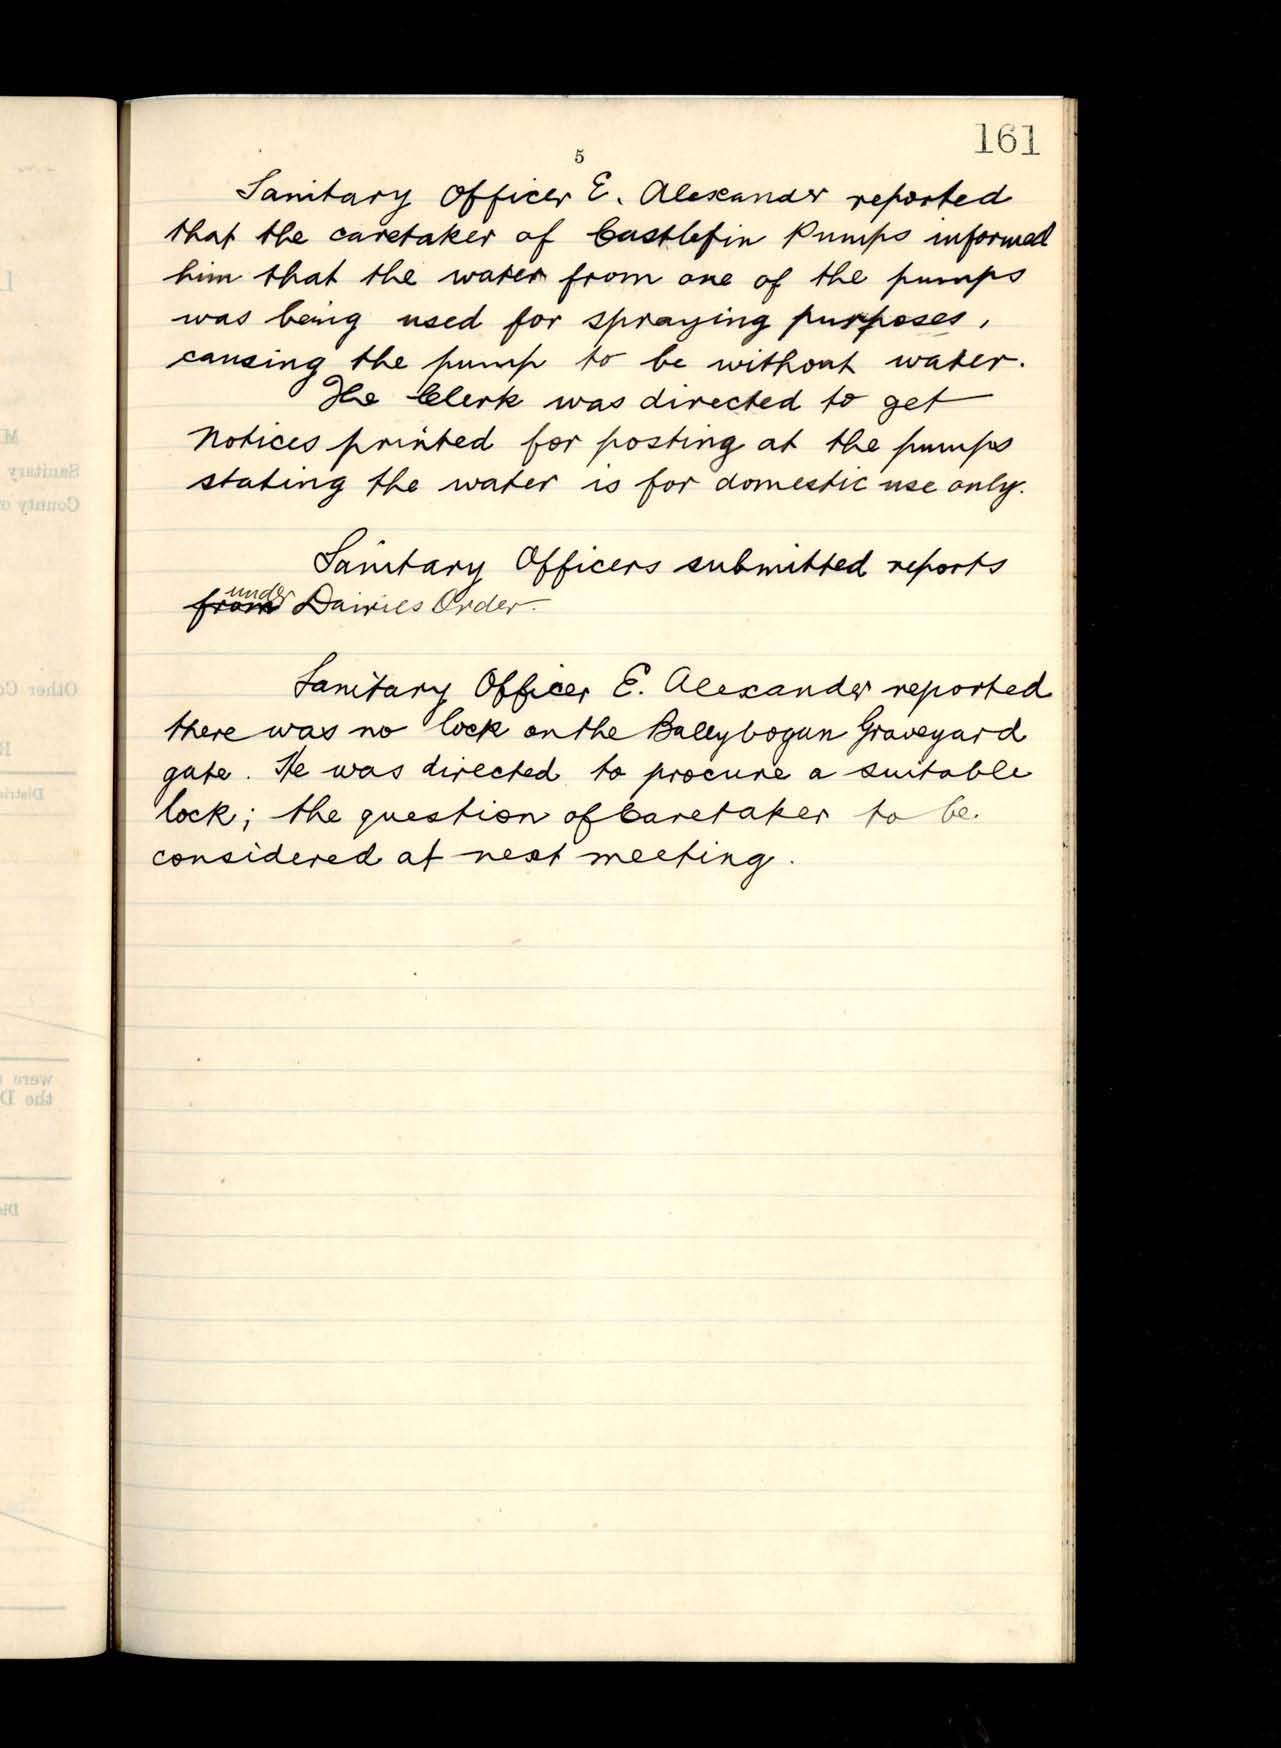 161
5
Sanitary Officer E. Alexander reported
that the caretaker of Castlefin Pumps informed
him that the water from one of the pumps
was being used for spraying purposes,
causing the pump to be without water.
The Clerk was directed to get
notices printed for posting at the pumps
stating the water is for domestic use only.
Sanitary Officers submitted reports
under
from Dairies Order.
Sanitary Officer E. Alexander reported
there was no lock on the Ballybogan Graveyard
gate. He was directed to procure a suitable
lock; the question of Caretaker to be
considered at next meeting.
Sanitary
County
Other Co
Distri
were
the D
Dis